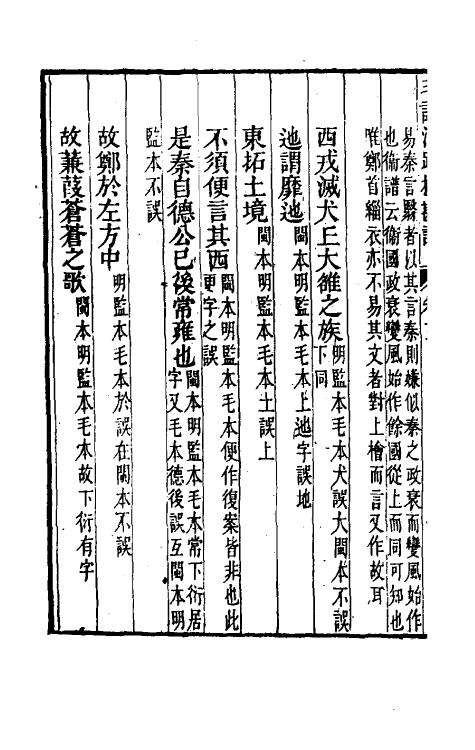 易秦言翳者以其言秦則嫌似秦之政衰而變風始作
也衞譜云衞國政衰變風始作餘國從上而同可知也
唯鄭首緇衣亦不易其文者對上檜而言又作故耳
西戎滅犬丘大雒之族明監本毛本犬誤大閩本不誤下同
迆謂靡迆閩本明監本毛本上迆字誤地
東拓土境閩本明監本毛本土誤上
不須便言其西閩本明監本毛本便作復案皆非也此更字之誤
是秦自德公已後常雍也閩本明監本毛本常下衍居字又毛本德後誤互閩本明
監本不誤
故鄭於左方中明監本毛本於誤在閩本不誤
故蒹葭蒼蒼之歌閩本明監本毛本故下衍有字